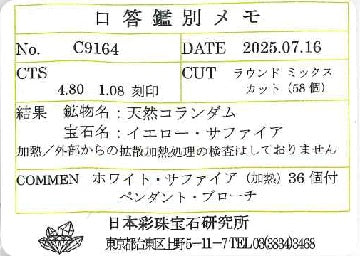 口答鑑別メモ
No. C9164 DATE 2025.07.16
CTS 4.80 1.08 刻印 CUT ラウンド ミックス
カット(58個)
結果 鉱物名:天然コランダム
宝石名:イエロー・サファイア
加熱/外部からの拡散加熱処理の検査はしておりません
COMMEN ホワイト・サファイア(加熱)36個付
ペンダント・ブローチ
日本彩珠宝石研究所
東京都台東区上野5-11-7 TEL03(3834)3468